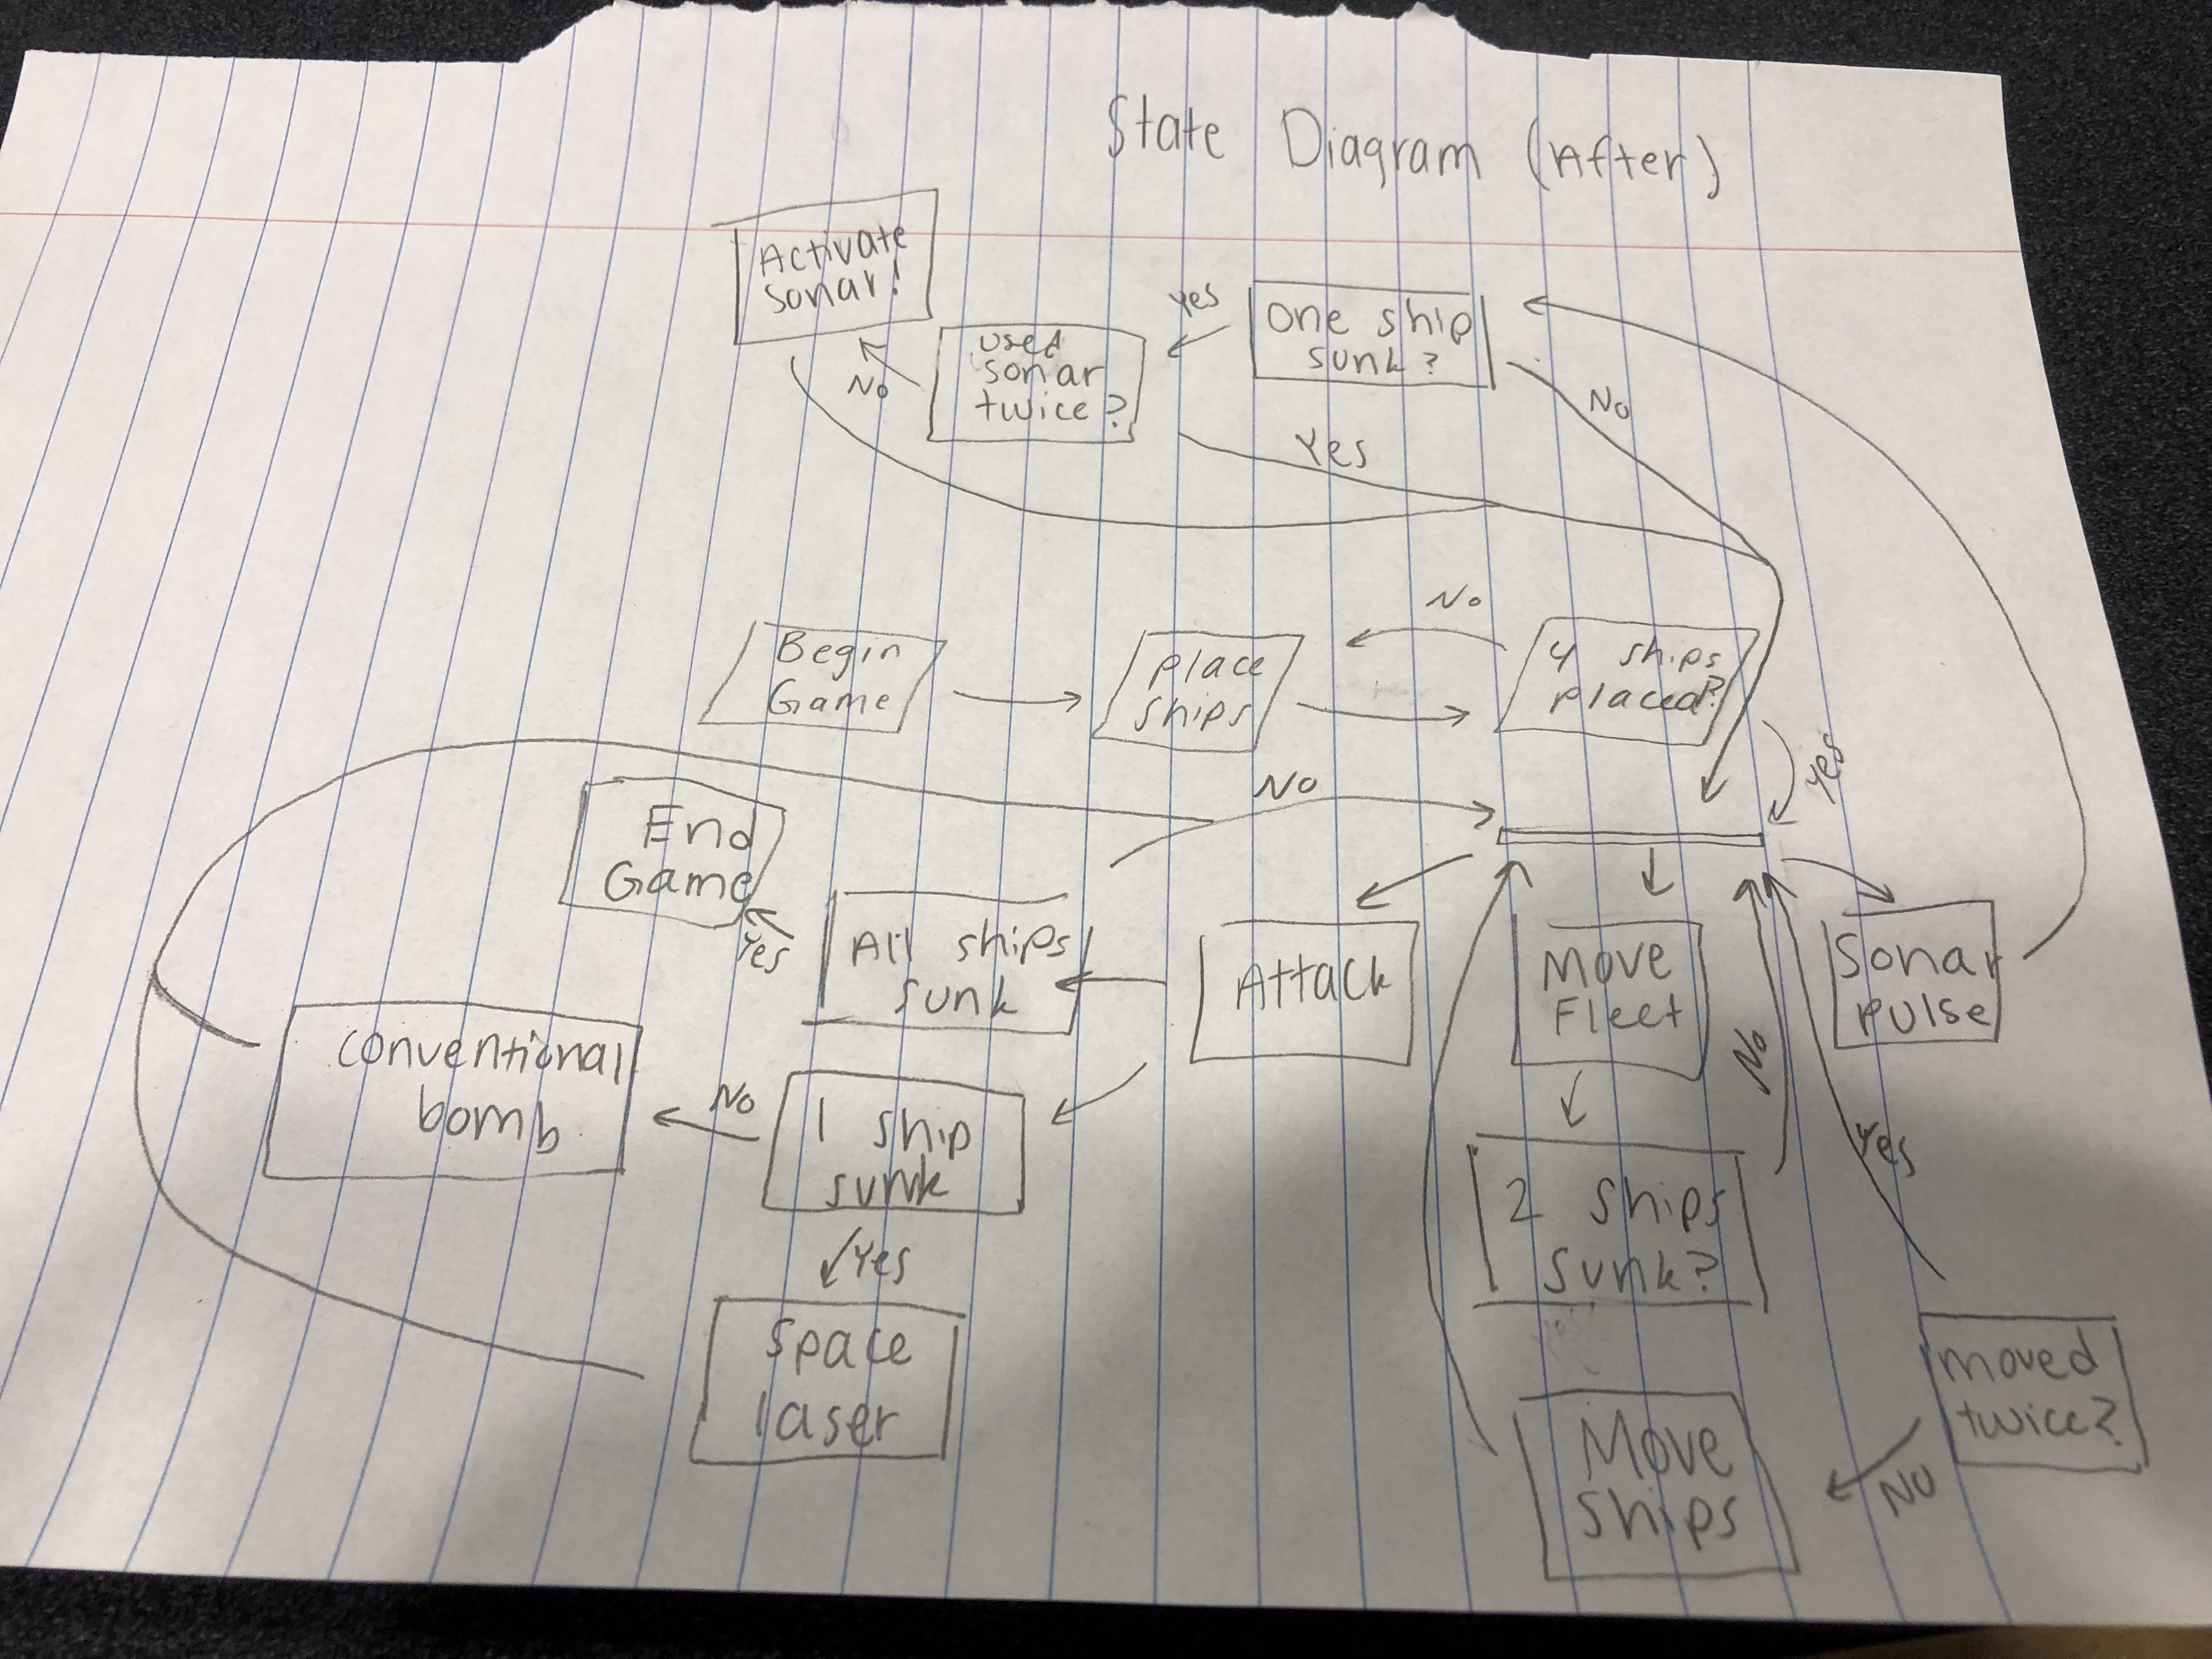 State Diagram (After)
Activate
sonar!
No
used
sonar
twice?
Yes
One ship
sunk?
No
Yes
Begin
Game
Place
ships
No
4 ships
placed?
Yes
No
End
Game
Yes
All ships
sunk
Attack
Move
Fleet
Sonar
pulse
conventional
bomb
No
1 ship
sunk
Yes
Space
laser
2 ships
sunk?
No
Yes
Move
ships
No
moved
twice?